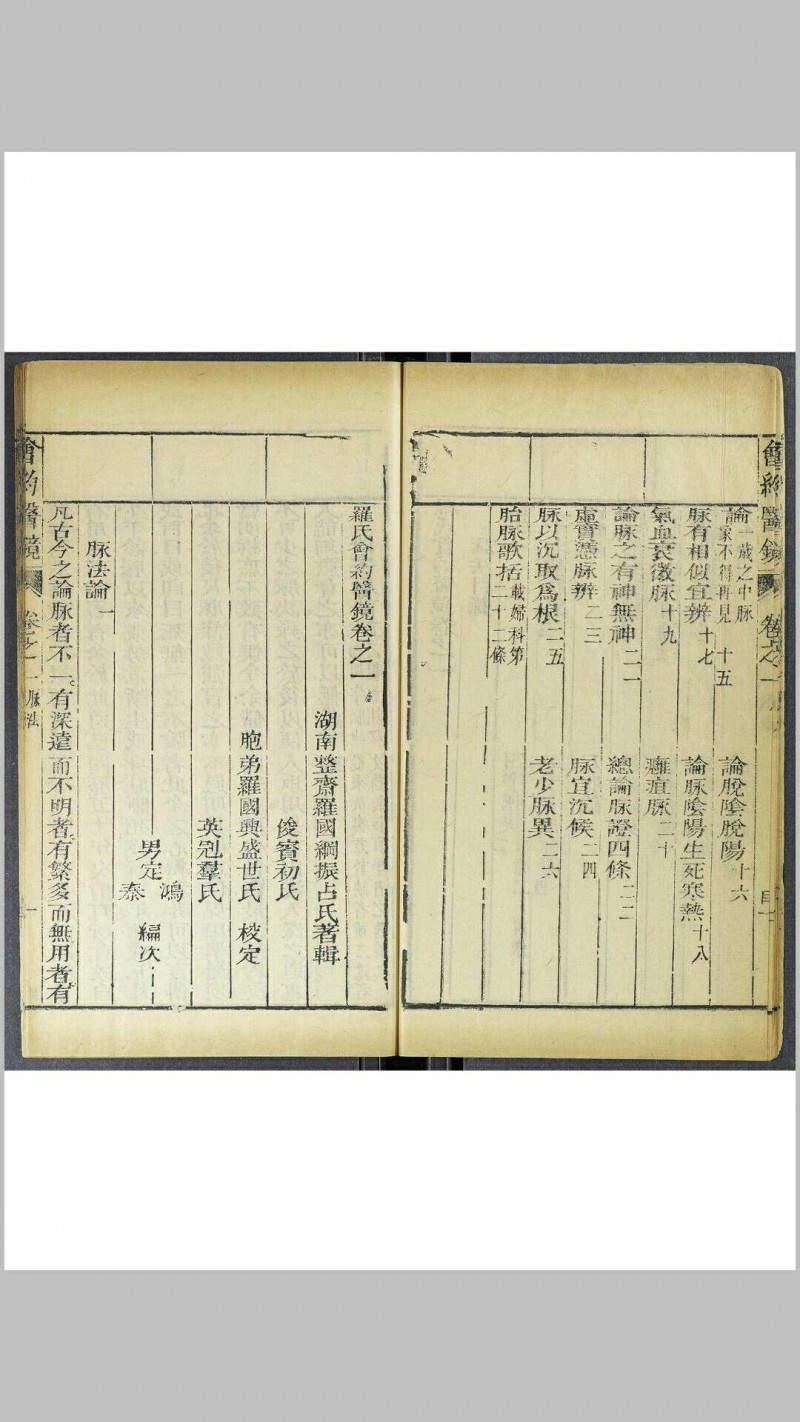 會約醫鏡 卷之一
論一歲之中脉家不得再見 十五
論脫陰脫陽十六
脉有相似宜辨十七
論脉陰陽生死寒熱十八
氣血衰徵脉十九
癰疽脉二十
論脉之有神無神二一
總論脉證四條二二
虛實憑脉辨二三
脉宜沉候二四
脉以沉取爲根二五
老少脉異二六
胎脉歌括載婦科第二十二條
羅氏會約醫鏡卷之一
湖南整齋羅國綱振占氏著輯
俊賓初氏
胞弟羅國興盛世氏 校定
英冠羣氏
鴻
男定 編次
泰
脉法論一
凡古今之論脉者不一。有深遠而不明者。有繁多而無用者。有
會約醫鏡 卷之一 脉法 一